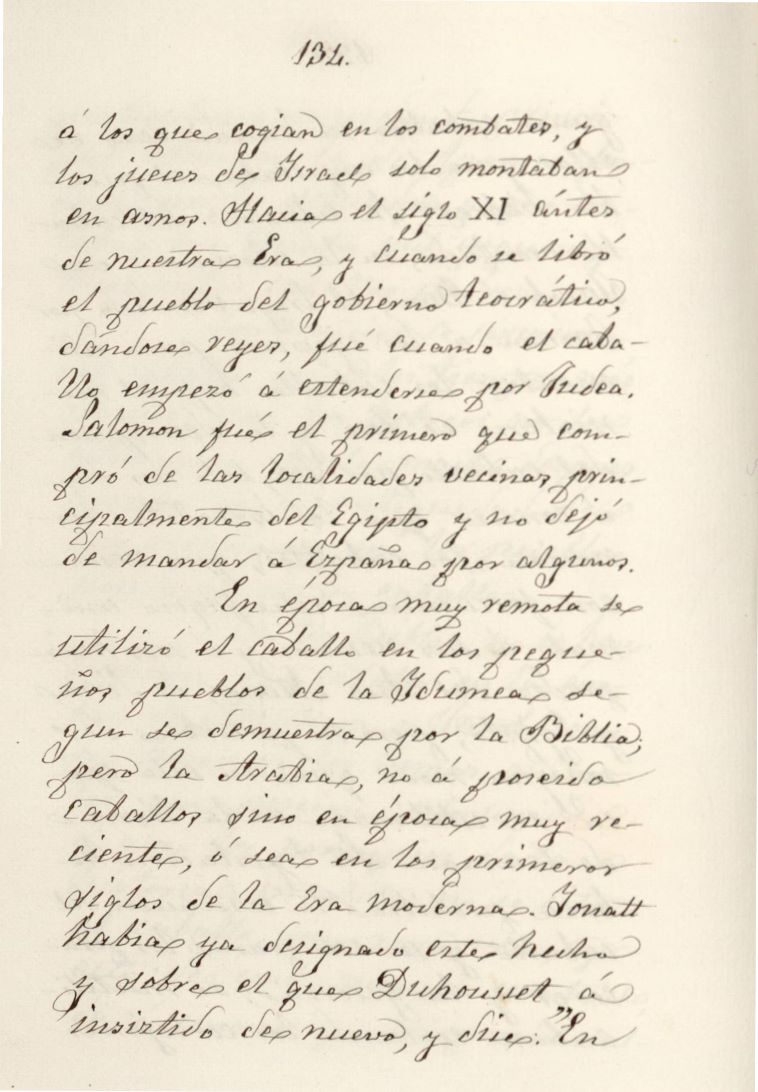 134.
á los que cogian en los combates, y
los jueces de Israel solo montaban
en asnos. Hacia el siglo XI ántes
de nuestra Era, y cuando se libró
el pueblo del gobierno teocrático,
dándose reyes, fué cuando el caba-
llo empezó á estenderse por Judea.
Salomon fué el primero que com-
pró de las localidades vecinas, prin-
cipalmente del Egipto y no dejó
de mandar á España por algunos.
En época muy remota se
utilizó el caballo en los peque-
ños pueblos de la Idumea se-
gun se demuestra por la Biblia;
pero la Arabia, no á poseido
caballos sino en época muy re-
ciente, ó sea en los primeros
siglos de la Era moderna. Jonatt
habia ya designado este hecho
y sobre el que Duhousset á
insistido de nuevo, y dice: "En